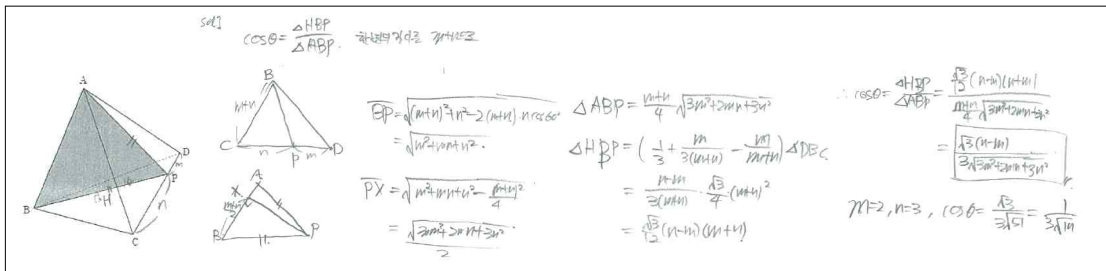 sol]
cosθ = △HBP / △ABP. 한변의 길이를 m+n으로
A
B
C
D
P
H
m
n
B
m+n
C
n
P
m
D
A
X
m+n / 2
B
P
BP = √((m+n)²+n²-2(m+n)·n cos60°)
= √(m²+mn+n²).
PX = √(m²+mn+n² - (m+n)²/4)
= √(3m²+2mn+3n²) / 2
△ABP = (m+n)/4 √(3m²+2mn+3n²)
△HBP = (1/3 + m/3(m+n) - m/(m+n)) △DBC.
= (n-m)/3(m+n) · √3/4 · (m+n)²
= √3/12 (n-m)(m+n)
∴ cosθ = △HBP / △ABP = √3/12 (n-m)(n+m) / ((m+n)/4 √(3m²+2mn+3n²))
= √3(n-m) / 3√(3m²+2mn+3n²)
m=2, n=3, cosθ = √3 / 3√51 = 1 / 3√17